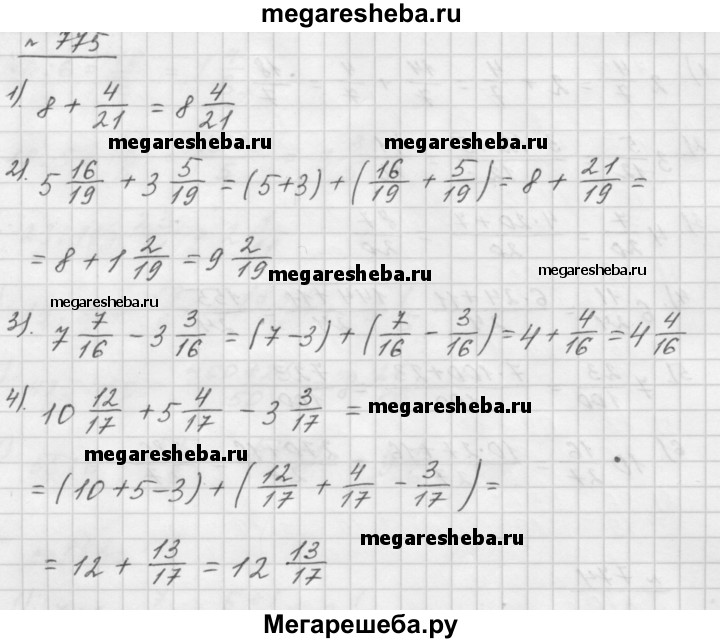 megaresheba.ru
№ 775
1). 8 + 4/21 = 8 4/21
megaresheba.ru megaresheba.ru
2). 5 16/19 + 3 5/19 = (5+3) + (16/19 + 5/19) = 8 + 21/19 =
= 8 + 1 2/19 = 9 2/19
megaresheba.ru megaresheba.ru
megaresheba.ru
3). 7 7/16 − 3 3/16 = (7−3) + (7/16 − 3/16) = 4 + 4/16 = 4 4/16
4). 10 12/17 + 5 4/17 − 3 3/17 =
megaresheba.ru
megaresheba.ru
= (10+5−3) + (12/17 + 4/17 − 3/17) =
megaresheba.ru
= 12 + 13/17 = 12 13/17
Мегарешеба.ру